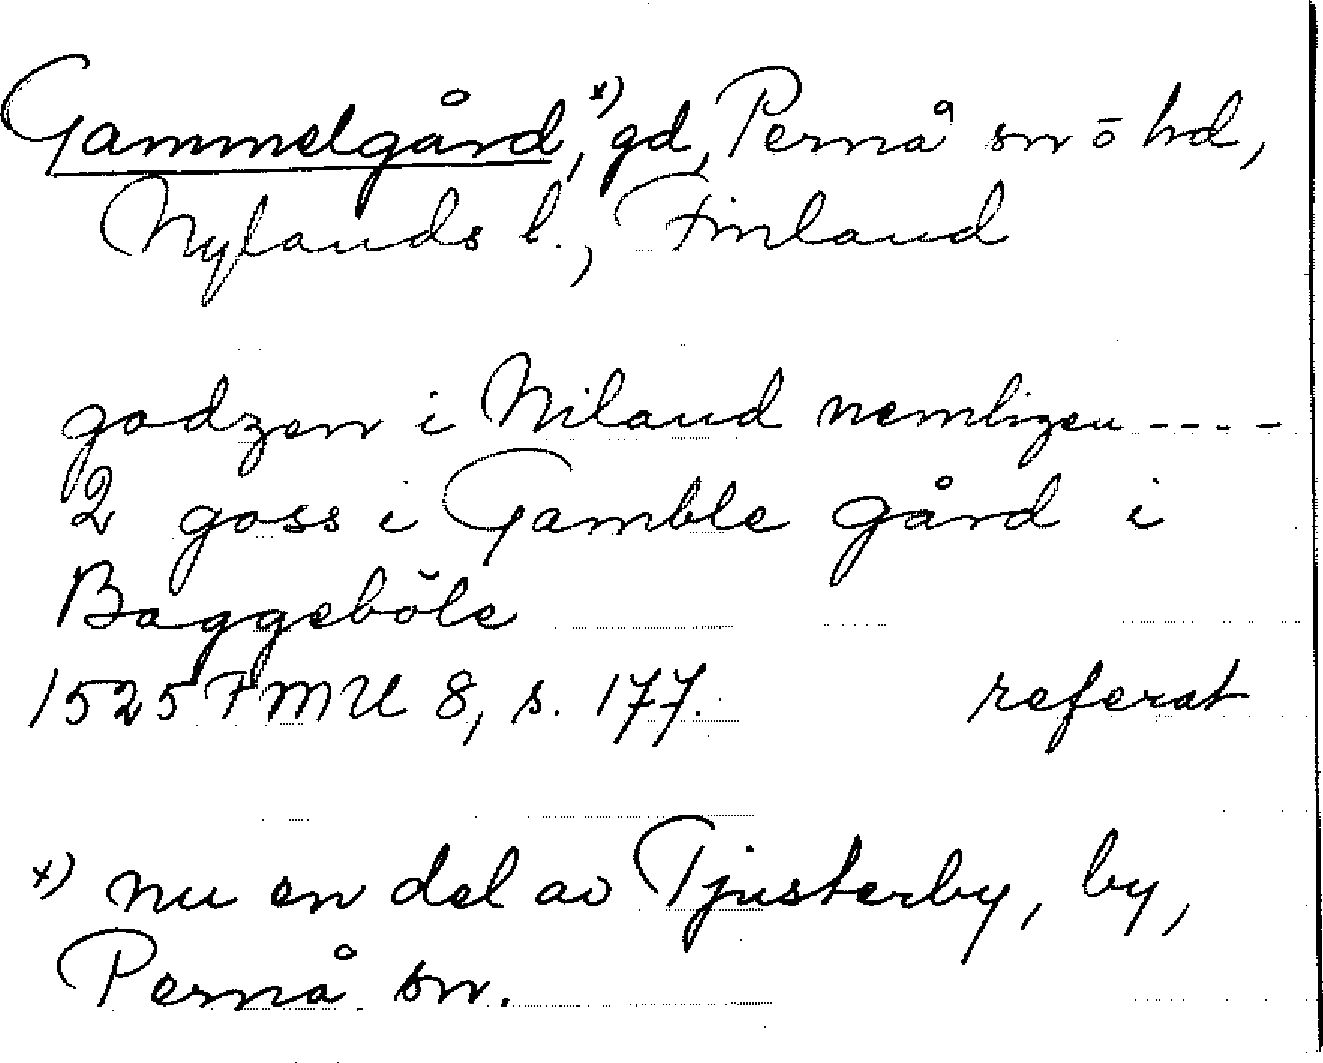 Gammelgård,*) gd, Pernå sn o hd,
Nylands l., Finland
godzen i Niland nemligen ----
2 goss i Gamble gård i
Baggeböle
1525 FMU 8, s. 177. referat
*) nu en del av Tjusterby, by,
Pernå sn.